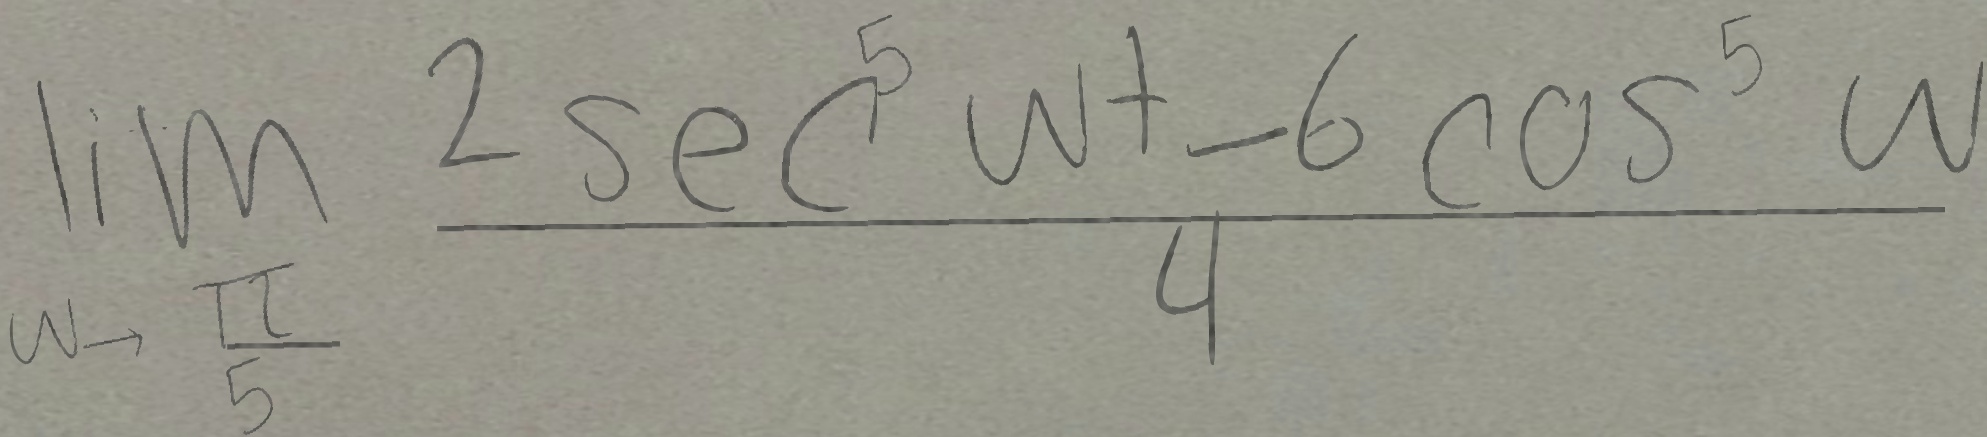 lim_{w→\frac{π}{5}} \frac{2 sec^5 w + -6 cos^5 w}{4}